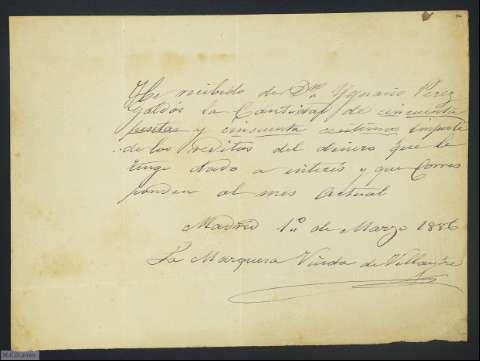 He recibido de Dn. Ygnacio Perez
Galdós la Cantidad de cincuenta
pesetas y cincuenta centimos importe
de los reditos del dinero que le
tengo dado a interés y que Corres
ponden al mes actual
Madrid 1º de Marzo 1886
La Marquesa Viuda de